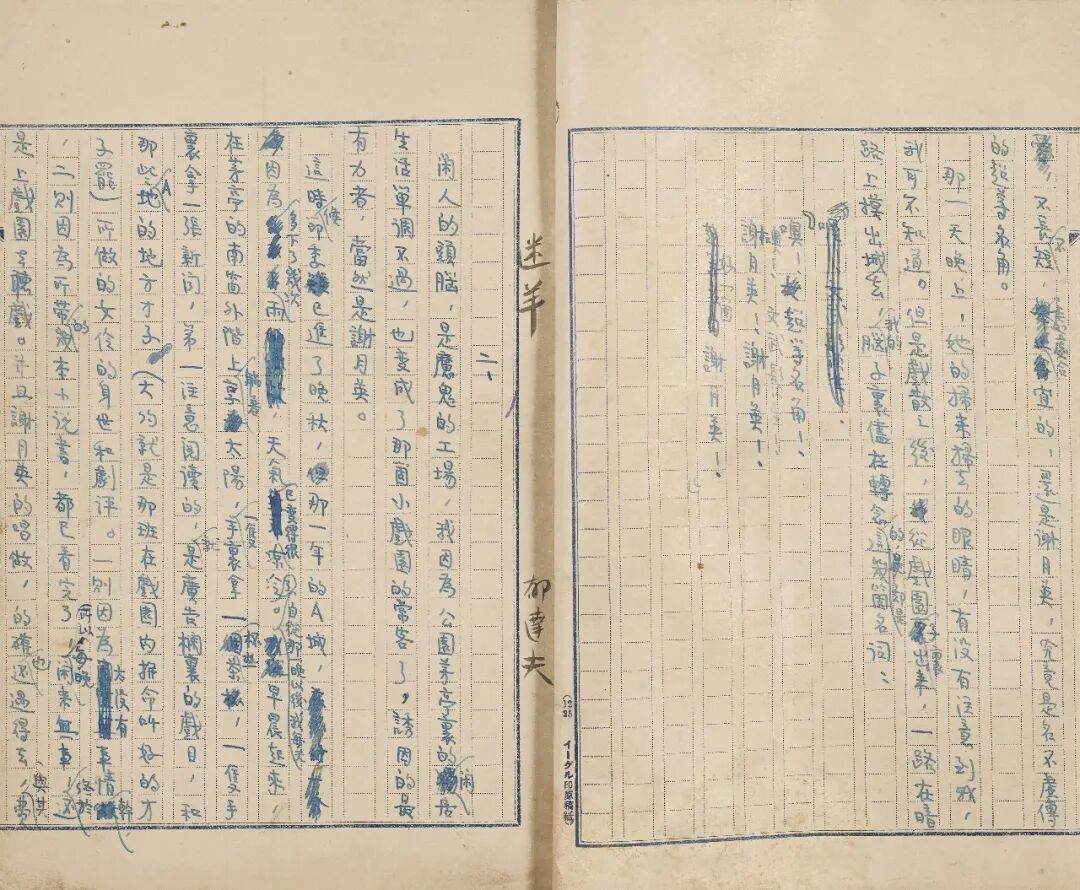 不長短,
宜的,還是謝月英,究竟是名不虛傳
的超等名角。
那一天晚上,她的掃來掃去的眼睛,有没有注意到我,
我可不知道。但是戲散之後,從戲園子裏出来,一路在暗
路上摸出城去,我的腦子裏儘在轉念的,却是這幾箇名詞:
噢!超等名角!
謝月英!謝月英!
好一箇謝月英!
(12 25 イーグル印原稿紙)
迷羊
郁達夫
二、
闲人的頭腦,是魔鬼的工場,我因為公園茅亭裏的闲居
生活單調不過,也變成了那箇小戲園的常客了,誘因的最
有力者,當然是謝月英。
這時候節季已進了晚秋,那一年的A城,
因為多下了幾次雨,天氣已變得很凉冷。自從那一晚以後,我每天早晨起来,
在茅亭的南窗外階上躺着太陽,一隻手裏拿一杯茶,一隻手
裏拿一張新闻,第一注意阅讀的,是廣告欄裏的戲目,和
那些A地的地方才子(大约就是那班在戲園内拚命叫好的才
子罷)所做的女伶的身世和劇評。一則因為太没有事情幹
,二則因為所帶的幾本小说書,都已看完了,所以每晚闲来無事,終於還
是上戲園去聽戲。並且謝月英的唱做,的確也還過得去,與其